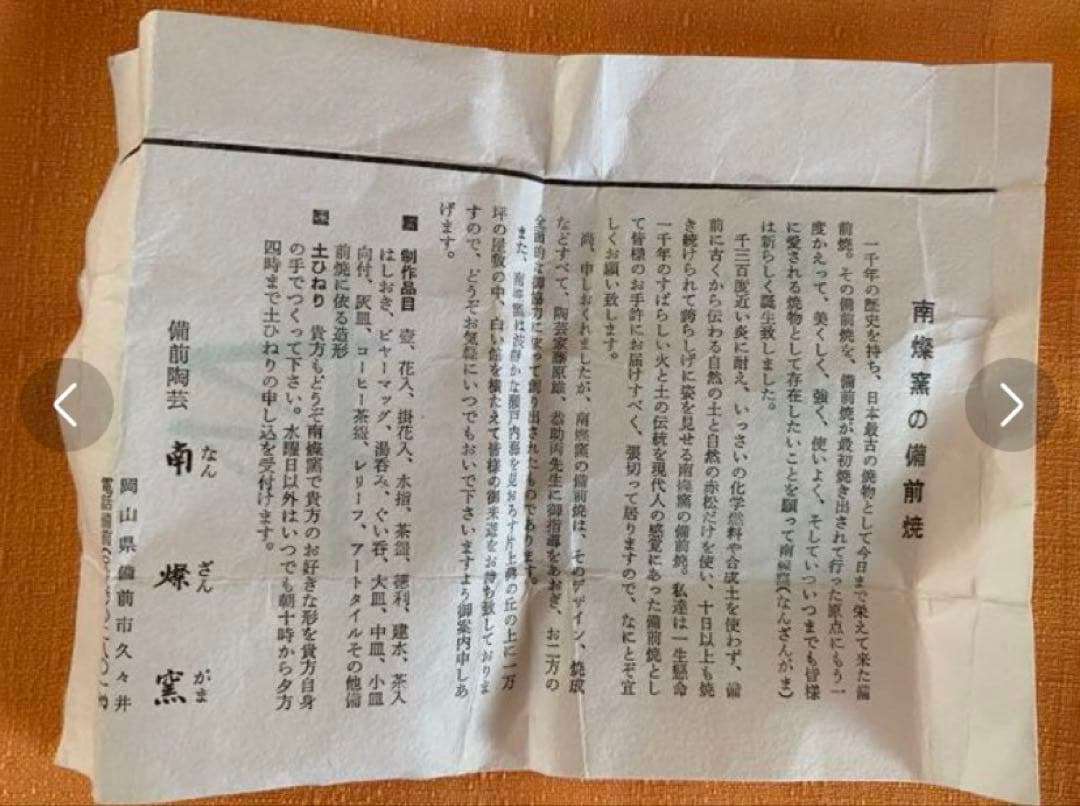 南燦窯の備前焼
一千年の歴史を持ち、日本最古の焼物として今日まで栄えて来た備
前焼。その備前焼を、備前焼が最初焼き出されて行った原点にもう一
度かえって、美しく、強く、使いよく、そしていついつまでも皆様
に愛される焼物として存在したいことを願って南燦窯(なんざんがま)
は新らしく誕生致しました。
千三百度近い炎に耐え、いっさいの化学燃料や合成土を使わず、備
前に古くから伝わる自然の土と自然の赤松だけを使い、十日以上も焼
き続けられて誇らしげに姿を見せる南燦窯の備前焼。私達は一生懸命
一千年のすばらしい火と土の伝統を現代人の感覚にあった備前焼とし
て皆様のお手許にお届けすべく、張切って居りますので、なにとぞ宜
しくお願い致します。
尚、申しおくれましたが、南燦窯の備前焼は、そのデザイン、焼成
などすべて、陶芸家藤原雄、恭助両先生に御指導をあおぎ、お二方の
全面的な御協力に依って創り出されたものであります。
また、南燦窯は波静かな瀬戸内海を見おろす片上湾の丘の上に一万
坪の屋敷の中、白い館を横たえて皆様の御来遊をお待ち致しておりま
すので、どうぞお気軽にいつでもおいで下さいますよう御案内申しあ
げます。
制作品目 壺、花入、掛花入、水指、茶盌、徳利、建水、茶入
はしおき、ビヤーマッグ、湯呑み、ぐい呑、大皿、中皿、小皿
向付、灰皿、コーヒー茶盌、レリーフ、アートタイルその他備
前焼に依る造形
土ひねり 貴方もどうぞ南燦窯で貴方のお好きな形を貴方自身
の手でつくって下さい。水曜日以外はいつでも朝十時から夕方
四時まで土ひねりの申し込を受付けます。
備前陶芸 南燦窯
なん ざん がま
岡山県備前市久々井
電話備前